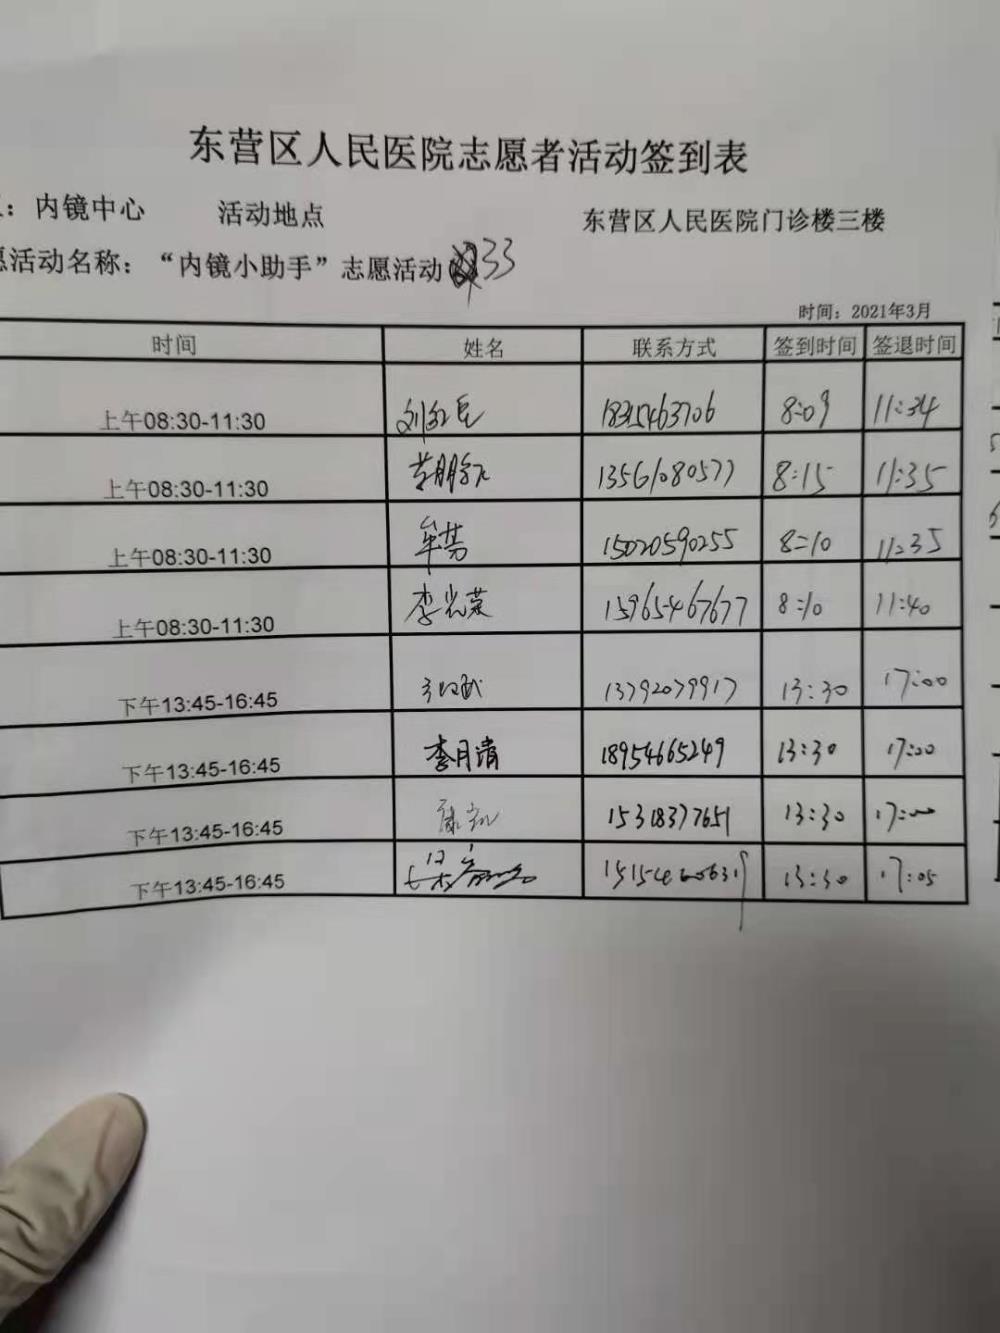 东营区人民医院志愿者活动签到表
：内镜中心 活动地点 东营区人民医院门诊楼三楼
愿活动名称：“内镜小助手”志愿活动 33
时间：2021年3月
时间 姓名 联系方式 签到时间 签退时间
上午08:30-11:30 18315463706 8:09 11:34
上午08:30-11:30 13561080577 8:15 11:35
上午08:30-11:30 牟芸 15020590255 8:10 11:35
上午08:30-11:30 李光荣 15965467677 8:10 11:40
下午13:45-16:45 13792079917 13:30 17:00
下午13:45-16:45 李月清 18954665249 13:30 17:00
下午13:45-16:45 15318377651 13:30 17:00
下午13:45-16:45 13:30 17:05